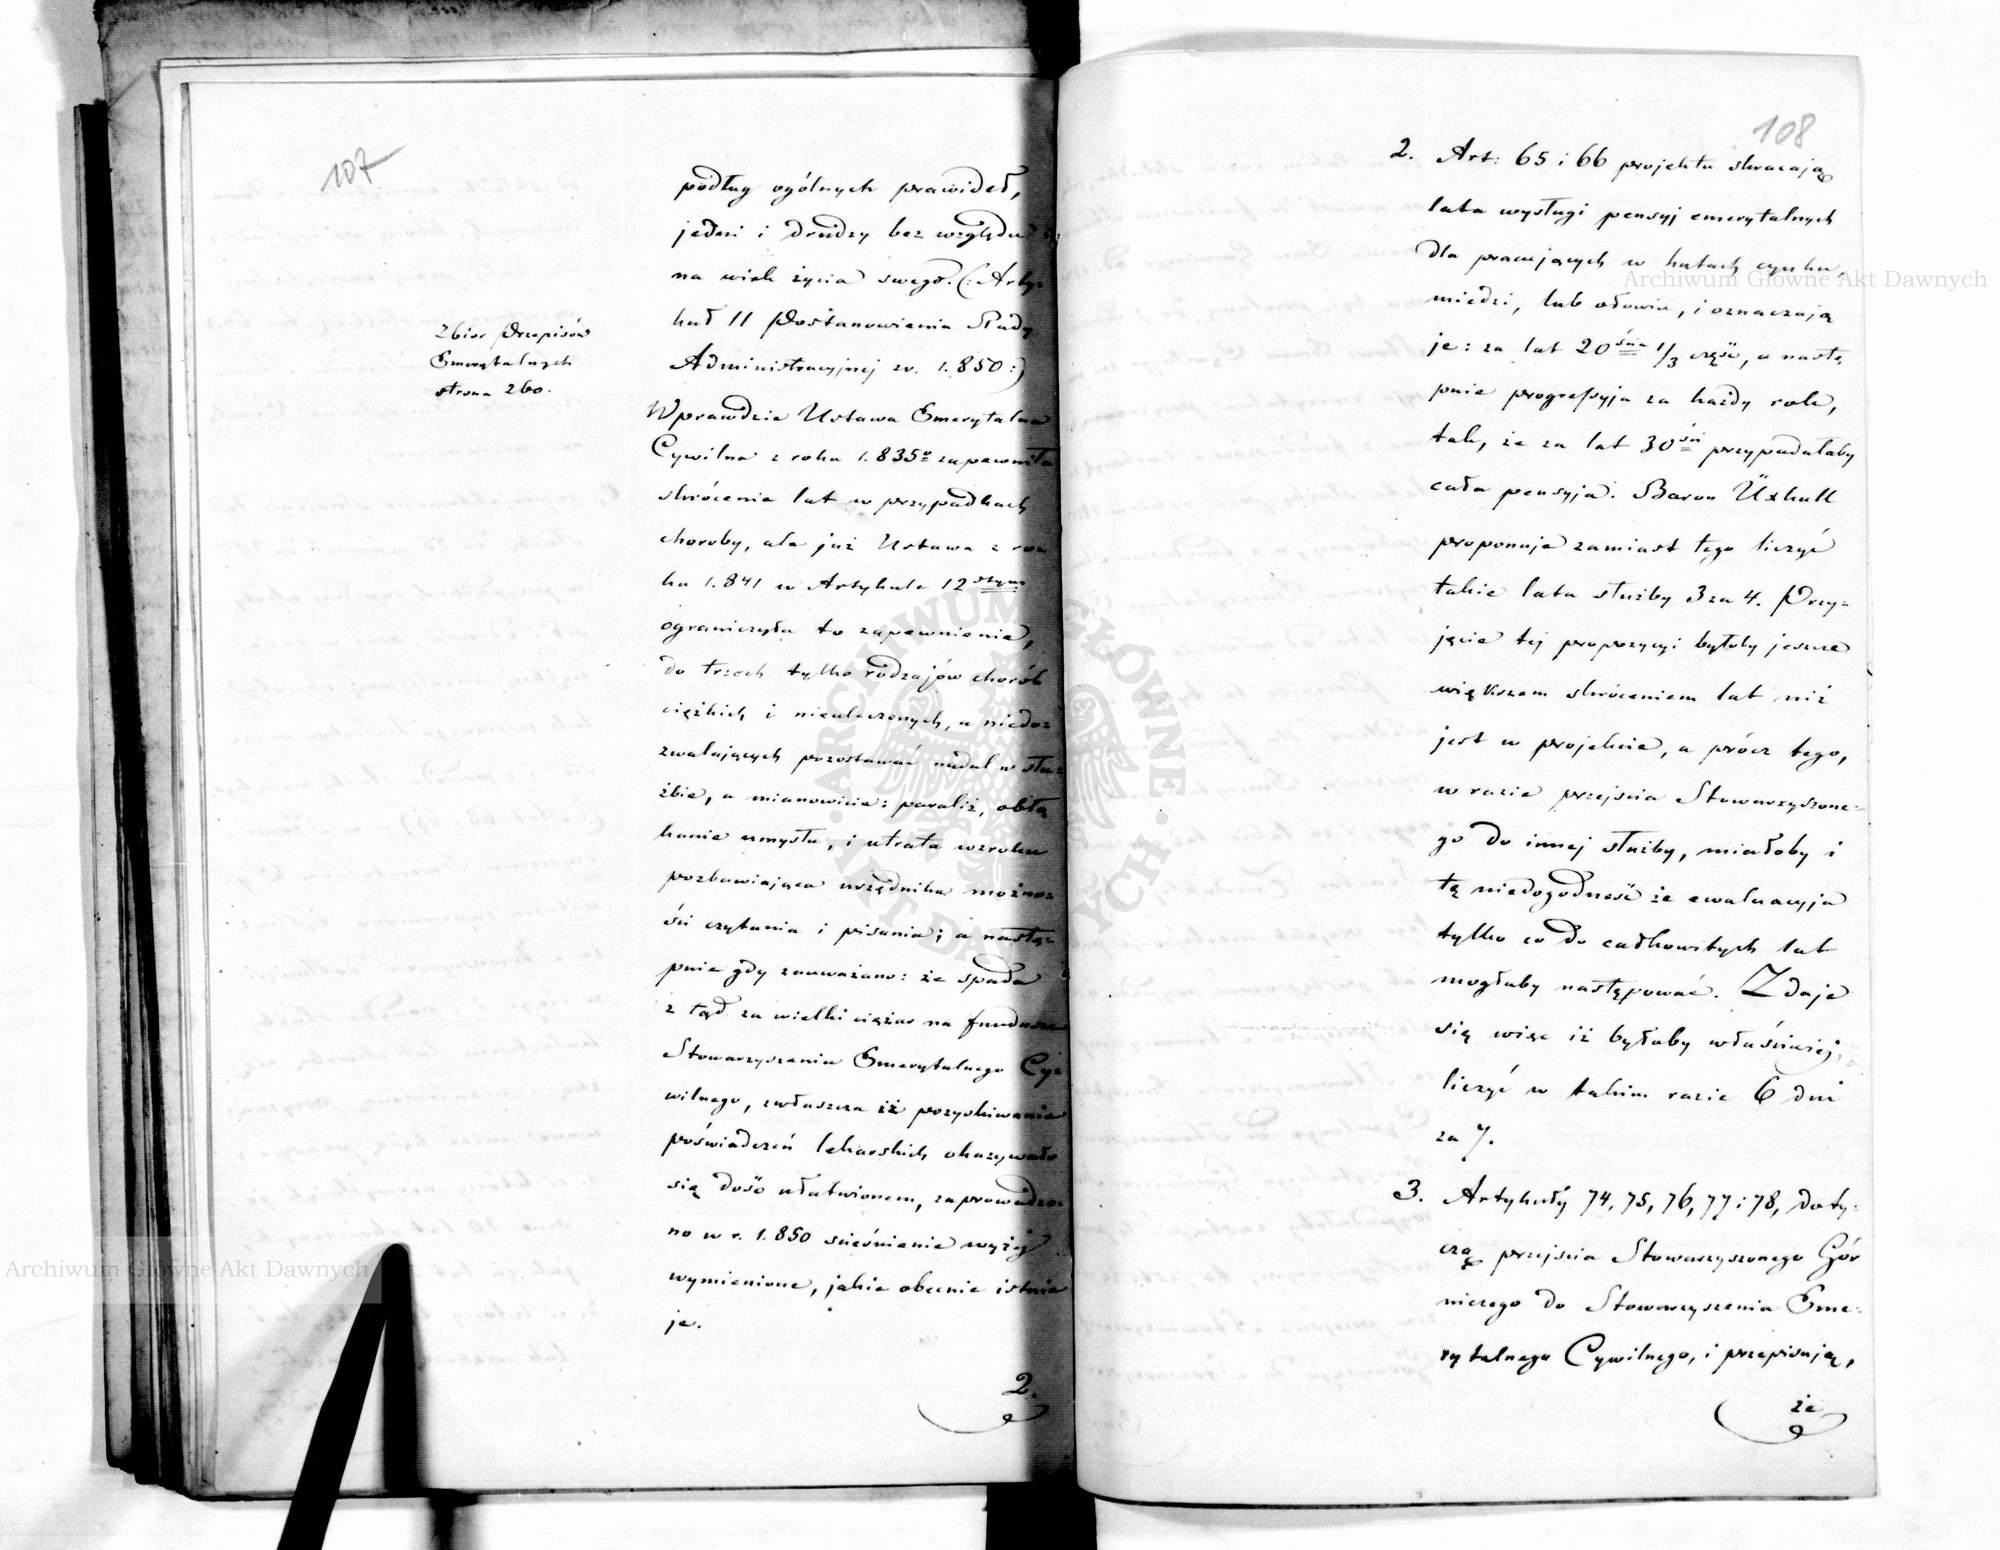 107
Zbior Przepisów
Emerytalnych
strona 260.
podług ogólnych prawideł,
jedni i drudzy bez względu
na wiek życia swego. (: Arty-
kuł 11 Postanowienia Rady
Administracyjnej z r. 1.850 :)
Wprawdzie Ustawa Emerytalna
Cywilna z roku 1.835º zapewniła
skrócenie lat w przypadkach
choroby, ale już Ustawa z ro=
ku 1.841 w Artykule 12stym
ograniczyła to zapewnienie,
do trzech tylko rodzajów chorób
ciężkich i nieuleczonych, a niedo=
zwalających pozostawać nadal w słu=
żbie, a mianowicie: paraliż, obłą
kanie umysłu, i utrata wzroku
pozbawiająca urzędnika możno=
ści czytania i pisania; a nastę=
pnie gdy zauważano: że spada
z tąd za wielki ciężar na fundusze
Stowarzyszenia Emerytalnego Cy=
wilnego, zwłaszcza iż pozyskiwanie
poświadczeń lekarskich okazywało
się dość ułatwionem, zaprowadzo=
no w r. 1.850 ścieśnienie wyżej
wymienione, jakie obecnie istnie
je.
2.
108
2. Art: 65 i 66 projektu skracają
lata wysługi pensyj emerytalnych
dla pracujących w hutach cynku,
miedzi, lub ołowiu, i oznaczają
je: za lat 20ścia 1/3 część, a nastę,
pnie progressyja za każdy rok,
tak, że za lat 30ści przypadałaby
cała pensyja. Baron Üxkull
proponuje zamiast tego liczyć
takie lata służby 3 za 4. Przy=
jęcie tej propozycyi byłoby jeszcze
większem skróceniem lat niż
jest w projekcie, a prócz tego,
w razie przejścia Stowarzyszone=
go do innej służby, miałoby i
tę niedogodność że ewaluacyja
tylko co do całkowitych lat
mogłaby następować. Zdaje
się więc iż byłoby właściwiej,
liczyć w takim razie 6 dni
za 7.
3. Artykuły 74, 75, 76, 77 i 78, doty=
czą przejścia Stowarzyszonego Gór
niczego do Stowarzyszenia Eme=
rytalnego Cywilnego, i przepisują,
że
Archiwum Główne Akt Dawnych
Archiwum Główne Akt Dawnych
· ARCHIWUM GŁÓWNE · AKT DAWNYCH